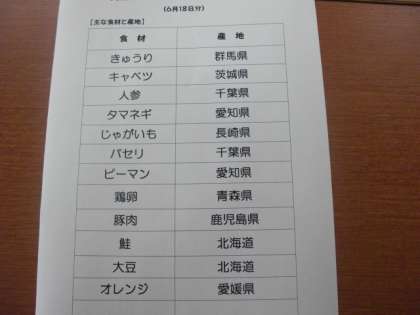 (6月18日分)
【主な食材と産地】
食材 産地
きゅうり 群馬県
キャベツ 茨城県
人参 千葉県
タマネギ 愛知県
じゃがいも 長崎県
パセリ 千葉県
ピーマン 愛知県
鶏卵 青森県
豚肉 鹿児島県
鮭 北海道
大豆 北海道
オレンジ 愛媛県